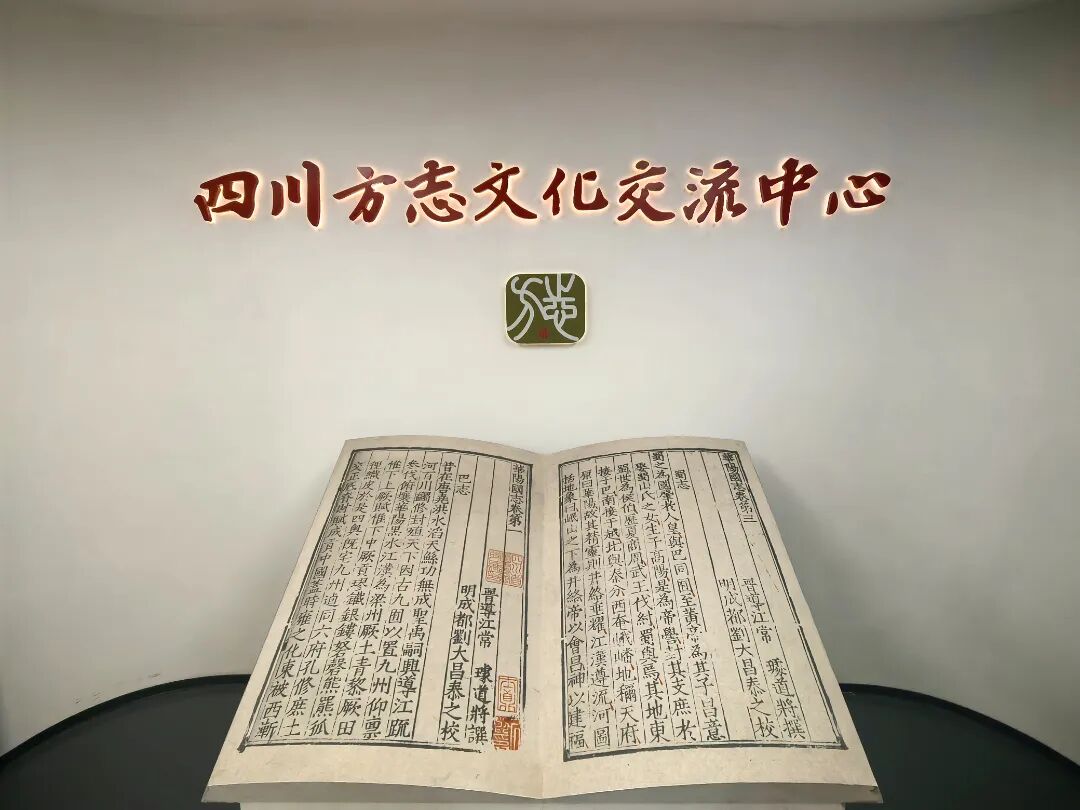 四川方志文化交流中心
華陽國志卷第三
晉導江常 璩道將撰
明成都劉大昌恭之校
蜀志
蜀之為國肇於人皇與巴同囿至黃帝為其子昌意
娶蜀山氏之女生子高陽是為帝嚳封其支庶於
蜀世為侯伯歷夏商周武王伐紂蜀與焉其地東
接于巴南接于越北與秦分西奄峨嶓地稱天府
原曰華陽故其精靈則井絡垂耀江漢遵流河圖
括地象曰岷山之下為井絡帝以會昌神以建福
華陽國志卷第一
晉導江常 璩道將撰
明成都劉大昌恭之校
巴志
昔在唐堯洪水滔天鯀功無成聖禹嗣興導江疏
河百川蠲修封殖天下因古九囿以置九州仰稟
參伐俯壤華陽黑水江漢為梁州厥土青黎厥田
惟下上厥賦惟下中厥貢璆鐵銀鏤砮磬熊羆狐
狸織皮於是四奧既宅九州逌同六府孔修庶土
交正厎慎財賦成貢中國蓋時雍之化東被西漸